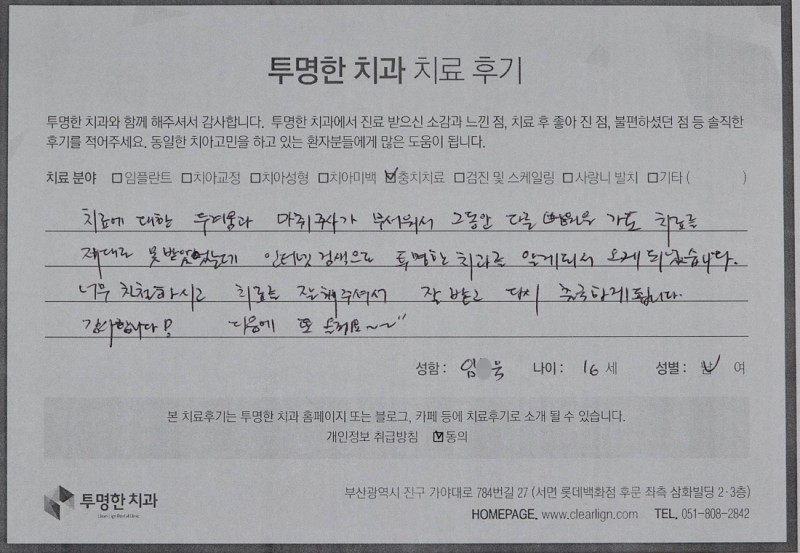 투명한 치과 치료 후기
투명한 치과와 함께 해주셔서 감사합니다. 투명한 치과에서 진료 받으신 소감과 느낀 점, 치료 후 좋아 진 점, 불편하셨던 점 등 솔직한
후기를 적어주세요. 동일한 치아고민을 하고 있는 환자분들에게 많은 도움이 됩니다.
치료 분야 □임플란트 □치아교정 □치아성형 □치아미백 ☑충치치료 □검진 및 스케일링 □사랑니 발치 □기타 ( )
치료에 대한 두려움과 마취주사가 무서워서 그동안 다른 가도 치료를
제대로 못받았었는데 인터넷 검색으로 투명한 치과를 알게되서 오게 되었습니다.
너무 친절하시고 치료를 잘해주셔서 잘 받고 다시 중국하게됩니다.
감사합니다! 다음에 또 올게요~~"
성함 : 임 욱 나이 : 16 세 성별 : 남 여
본 치료후기는 투명한 치과 홈페이지 또는 블로그, 카페 등에 치료후기로 소개 될 수 있습니다.
개인정보 취급방침 ☑동의
투명한 치과
부산광역시 진구 가야대로 784번길 27 (서면 롯데백화점 후문 좌측 삼화빌딩 2·3층)
HOMEPAGE. www.clearlign.com TEL. 051-808-2842